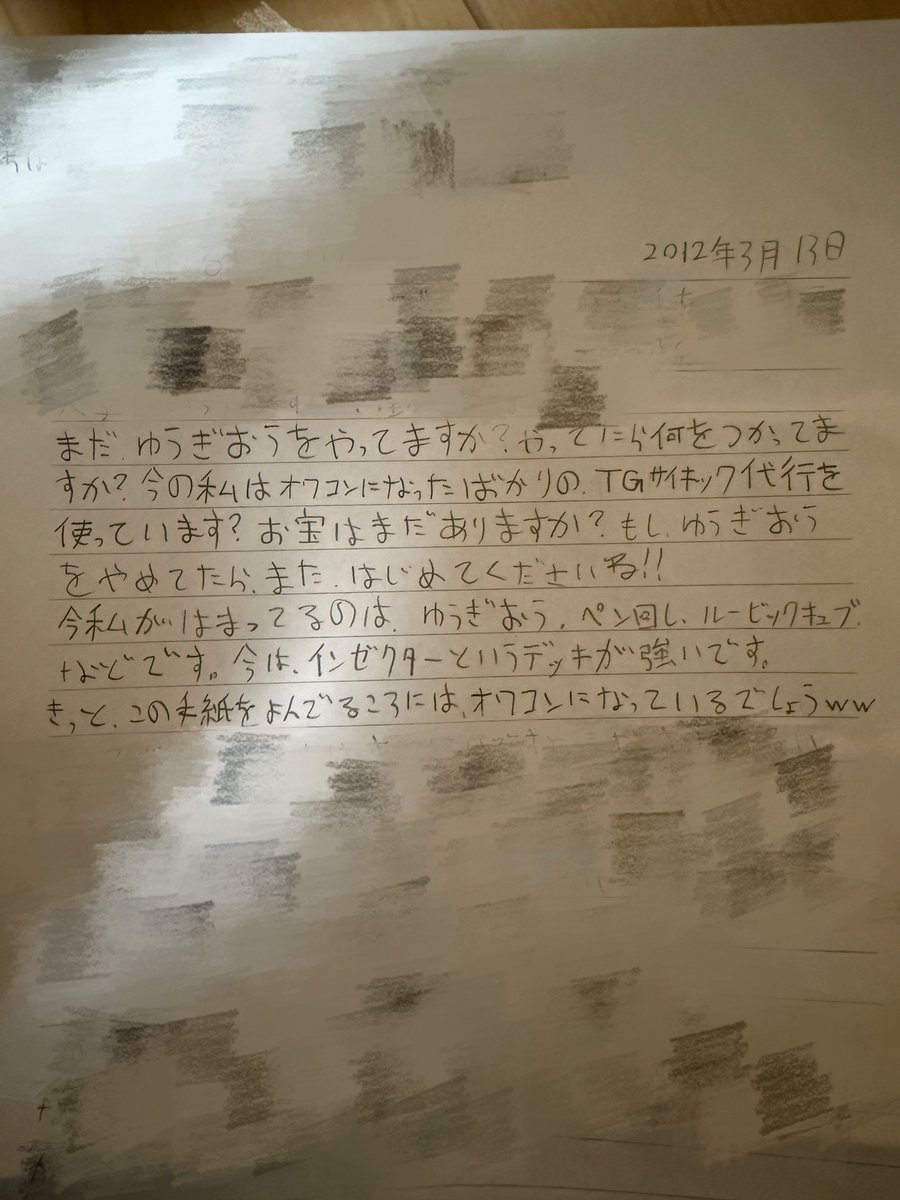 2012年3月13日
まだ、ゆうぎおうをやってますか?やってたら何をつかってま
すか?今の私はオワコンになったばかりの、TGサイキック代行を
使っています?お宝はまだありますか?もし、ゆうぎおう
をやめてたら、また、はじめてくださいね!!
今私がはまってるのは、ゆうぎおう、ペン回し、ルービックキューブ、
などです。今は、インゼクターというデッキが強いです。
きっと、この手紙をよんでるころには、オワコンになっているでしょうww